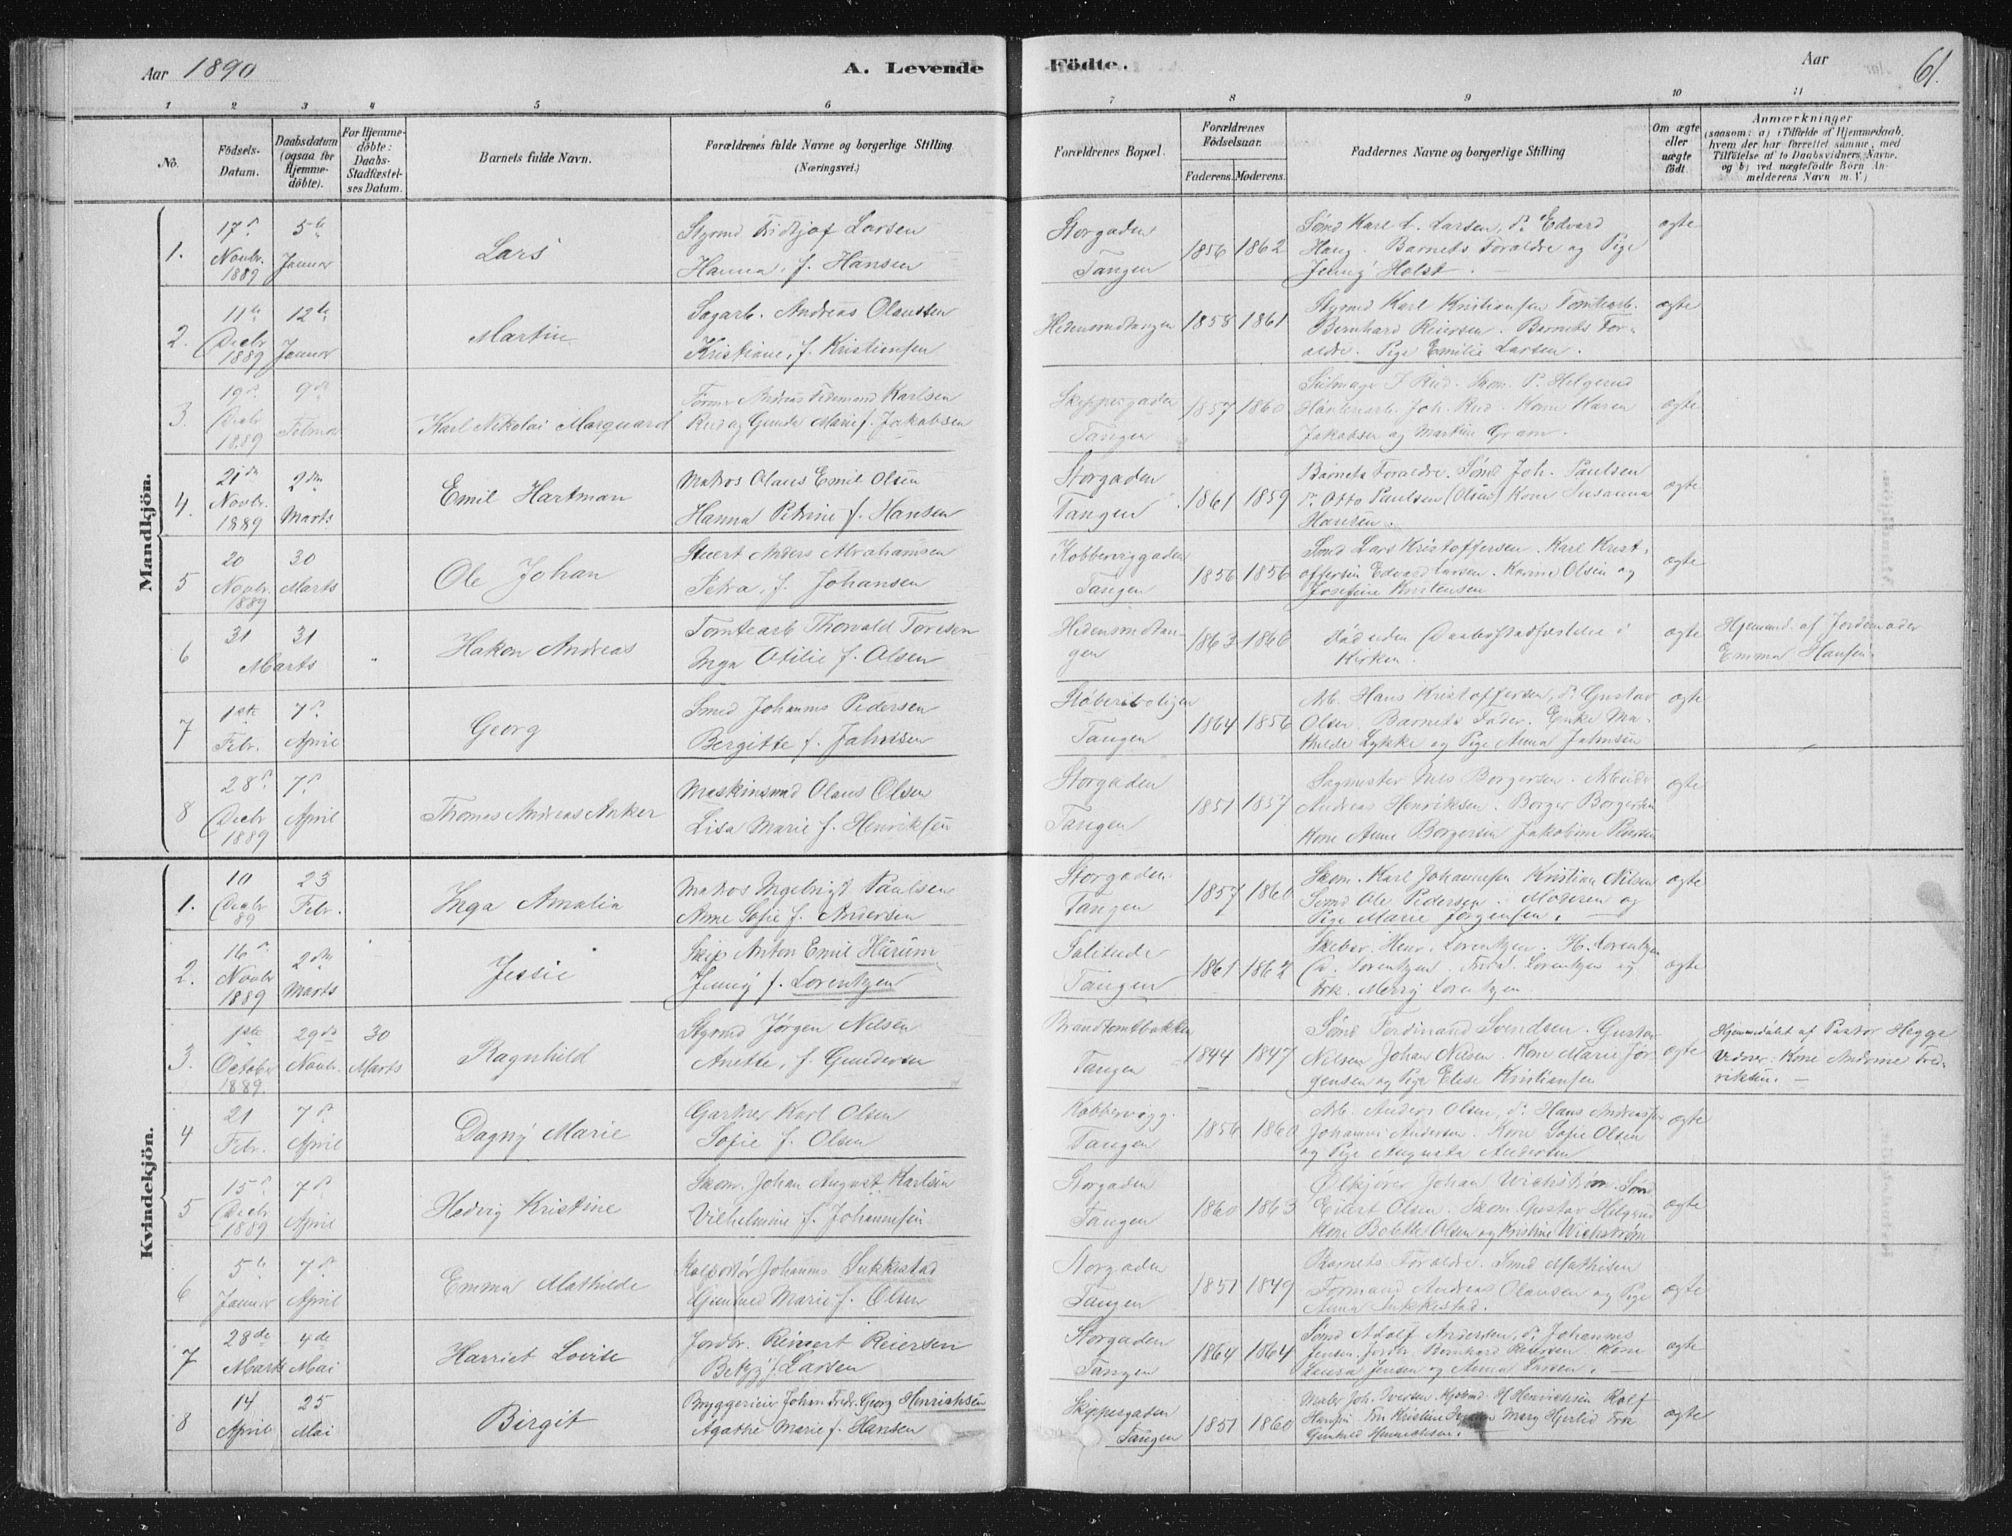 Aar 1890
A. Levende
Födte.
Aar
61.
1 2 3 4 5 6 7 8 9 10 11
No.
Födsels-Datum.
Daabsdatum (ogsaa for Hjemmedöbte).
For Hjemmedöbte: Daabs-Stadfæstelses Datum.
Barnets fulde Navn.
Forældrenes fulde Navne og borgerlige Stilling (Næringsvei.)
Forældrenes Bopæl.
Forældrenes Födselsaar.
Faderens. Moderens.
Faddernes Navne og borgerlige Stilling
Om ægte eller uægte födt.
Anmærkninger
(saasom: a) i Tilfælde af Hjemmedaab, hvem der har forrettet samme, med Tilföielse af to Daabsvidners Navne, og b) ved uægtefödte Börn Anmelderens Navn m. V.)
Mandkjön.
1. 17de Novbr. 1889 5te Januar Lars
Styrmd Fridtjof Larsen
Hanna, f. Hansen
Storgaden Tangen 1856 1862
Sömd Karl L. Larsen, do Edvard
Haug. Barnets Foraldre og Pige
Jenny Holst. ægte
2. 11te Decbr 1889 12te Januar Martin
Sagarb. Andreas Olaussen
Kristiane, f. Kristiansen
Hedensrudtangen 1858 1861
Styrmd Karl Kristiansen Tomtearb.
Bernhard Reiersen. Barnets For-
ældre. Pige Emilie Larsen. ægte
3. 19de Decbr 1889 9de Februar Karl Nikolai Marquard
Former Andreas Ferdinand Karlsen
Rud og Gunda Marie f. Jakobsen
Skippergaden Tangen 1857 1860
Jakobsen og Martine Gram. ægte
4. 21de Novbr. 1889 2den Marts Emil Hartman
Matros Olaus Emil Olsen
Hanna Petrine f. Hansen
Storgaden Tangen 1861 1859
Barnets Foraldre. Sömd Joh. Paulsen
do Otto Paulsen (Olsen) Kone Susanna
Hansen. ægte
5 20 Novbr. 1889 30 Marts Ole Johan
Stuert Anders Abrahamsen
Petra, f. Johansen
Kobbervigaden Tangen 1856 1856
Sömd Lars Kristoffersen. Karl Krist-
offersen Edvard Larsen. Karine Olsen og
Josefine Kristensen ægte
6 31 31 Marts Hakon Andreas
Tomtearb Thorvald Toresen
Inga Otilie f. Olsen
Hedensrudtan-
gen 1863 1866
Död uden Daabsstadfæstelse i
Kirken. ægte
Hjemmd. af Jordemoder
Emma Hansen.
7 1ste Febr. 7de April Georg
Smed Johannes Pedersen
Bergitte f. Jahnsen
Støberiboligen Tangen 1864 1856
Arb. Hans Kristoffersen, do Gustav
Olsen. Barnets Fader. Enke Ma-
thilde Lykke og Pige Anna Jahnsen ægte
8 28de Decbr 1889 7de April Thomas Andreas Anker
Maskinsmd Olaus Olsen
Lisa Marie f. Henriksen
Storgaden Tangen 1851 1857
Sagmester Nils Borgersen. Arbeidr
Andreas Henriksen. Borger Borgersen
Kone Anne Borgersen Jakobine ægte
Kvindekjön.
1. 10 Decbr 89 23 Febr. Inga Amalia
Matros Ingebrigt Paulsen
Anne Sofie f. Andersen
Storgaden Tangen 1857 1861
Skom. Karl Johannesen Kristian Nilsen
Sömd Ole Pedersen. Moderen og
Pige Marie Jørgensen. ægte
2. 16de Novbr 1889 2den Marts Jessie
Skip Anton Emil Harum
Jenny f. Lorentzen
Solitude Tangen 1861 1862
Skibsr. Henr. Lorentzen. H. Lorentzen
Lorentzen. Lorentzen og
Frk. Merry Lorentzen ægte
3. 1ste October 1889 29de Novbr. 30 Marts Ragnhild
Styrmd Jørgen Nilsen
Anette, f. Gundersen
Brandtomtbakken Tangen 1844 1847
Sömd Ferdinand Svendsen. Gustav
Nilsen Johan Nilsen. Kone Marie Jör-
gensen og Pige Elise Kristiansen ægte
Hjemmedöbt af Pastor Hegge
Vidner: Kone Andrine Fred-
riksen.
4 21 Febr. 7de April Dagny Marie
Gartner Karl Olsen
Sofie f. Olsen
Kobbervigg. Tangen 1856 1860
Arb. Anders Olsen, do Hans Andreassen
Johannes Andersen. Kone Sofie Olsen
og Pige Augusta Andersen ægte
5 15de Decbr 1889 7de April Hedvig Kristine
Skom. Johan August Karlsen
Vilhelmine f. Johannesen
Storgaden Tangen 1860 1863
Ølkjører Johan Wichström Sömd
Eilert Olsen. Skom Gustav Helgerud
Kone Bolette Olsen og Kristine Wichström ægte
6 5te Januar 7de April Emma Mathilde
Kolportör Johannes Sukkestad
Gunhild Marie f. Olsen
Storgaden Tangen 1851 1849
Barnets Foraldre. Smed Mathisen
Formand Andreas Olausen og Pige
Anna Sukkestad. ægte
7 28de Marts 4de Mai Harriet Lovise
Jordbr. Reinert Reiersen
Betzy f. Larsen
Storgaden Tangen 1864 1864
Sömd Adolf Andersen, do Johannes
Jensen Jordbr. Bernhard Reiersen. Kone
Laura Jensen og Anna Larsen. ægte
8 14 April 25 Mai Birgit
Bryggerieier Johan Fredr. Georg Henrichsen
Agathe Marie f. Hansen
Skippergaden Tangen 1851 1860
Maler Joh. Iversen. Kjöbmd H Henrichsen Rolf
Hansen Fru Kristine Mary Hjerlid Frk
Gunhild Henrichsen. ægte